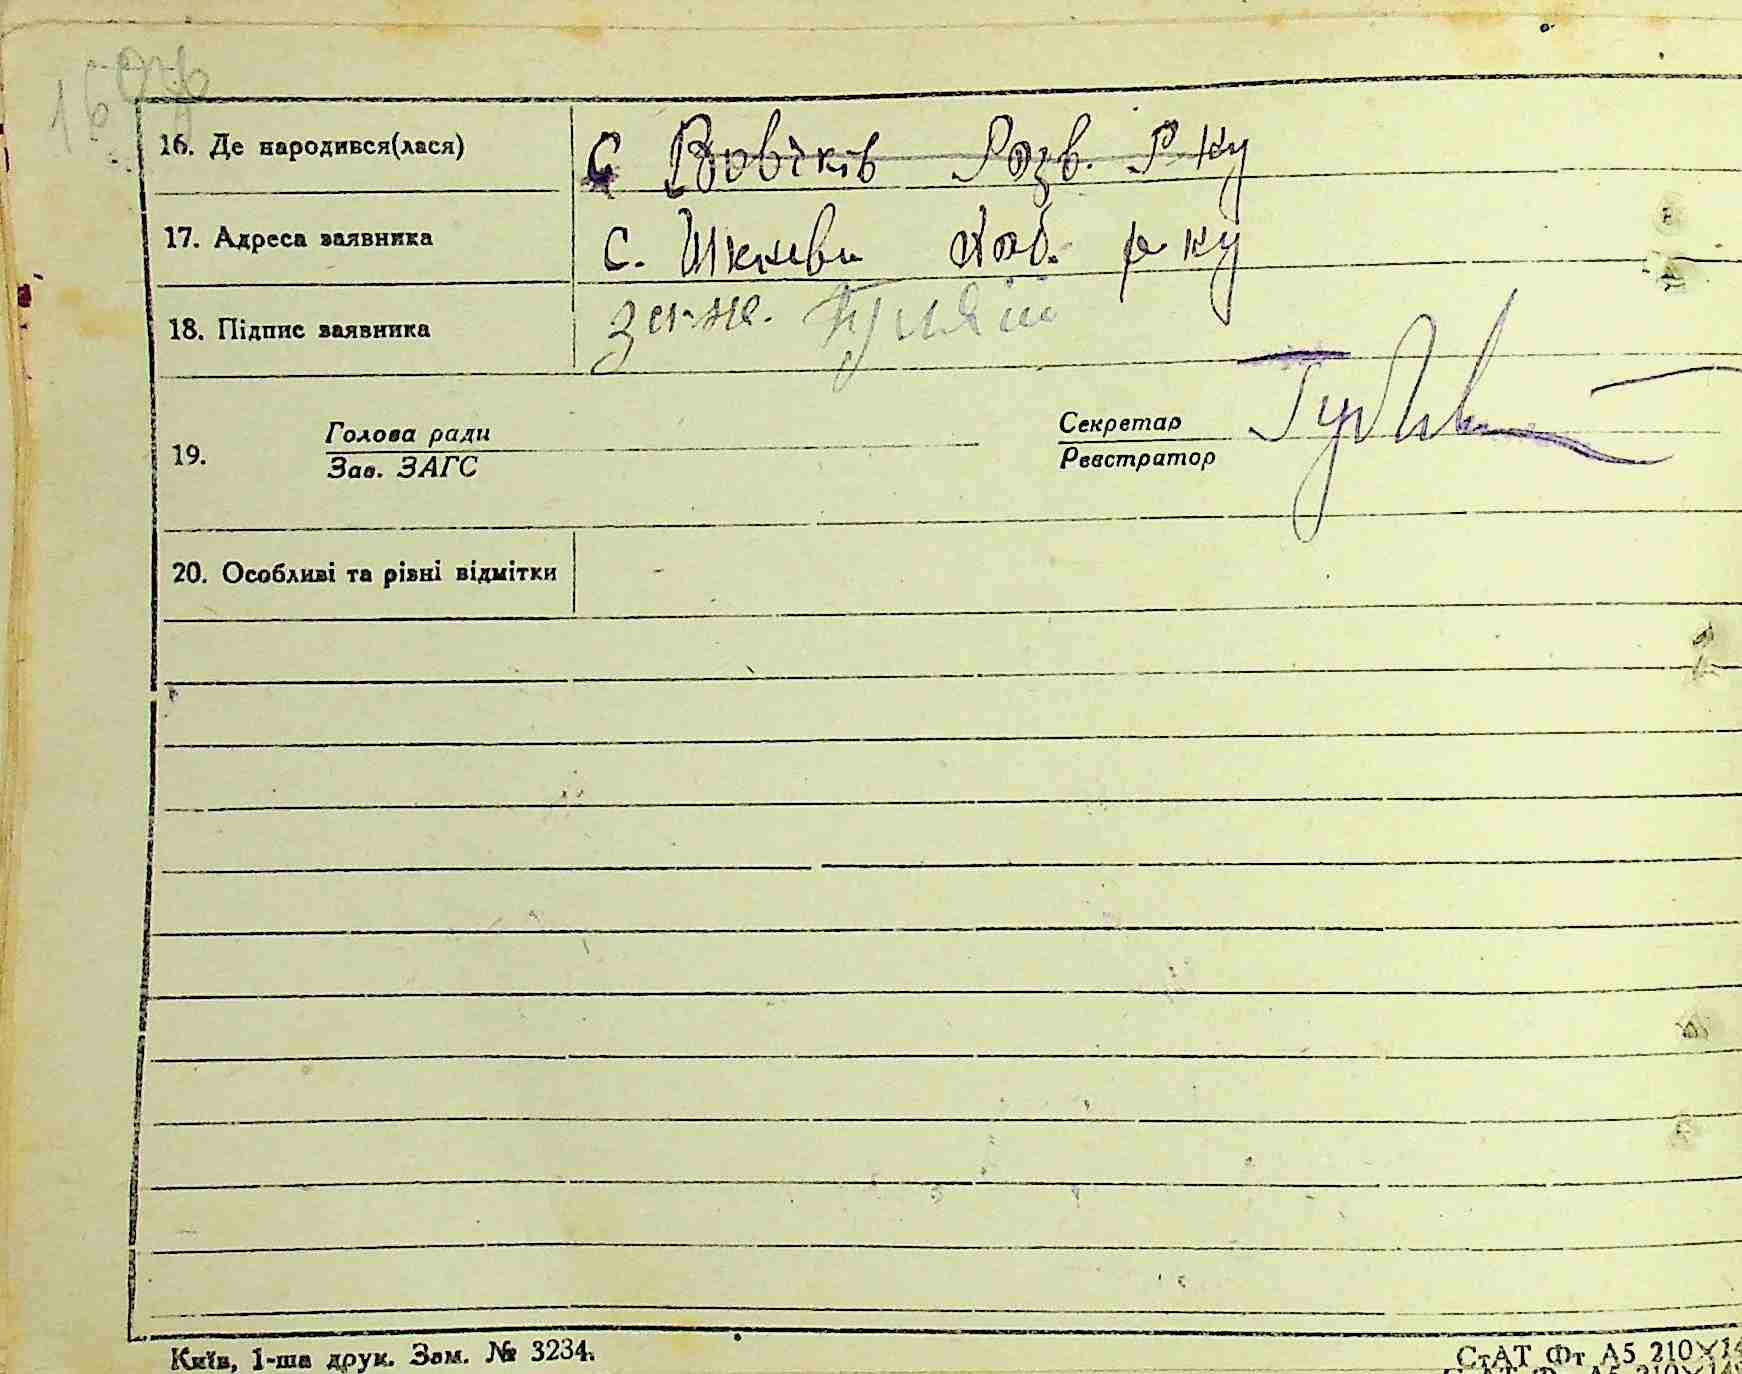 16. Де народився(лася) с Вовчків Розв. р-ку
17. Адреса заявника с. Шкнева Люб. р-ку
18. Підпис заявника
19. Голова ради Секретар
Зав. ЗАГС Реєстратор
20. Особливі та різні відмітки
Київ, 1-ша друк. Зам. № 3234.
СтАТ Фт А5 210×14